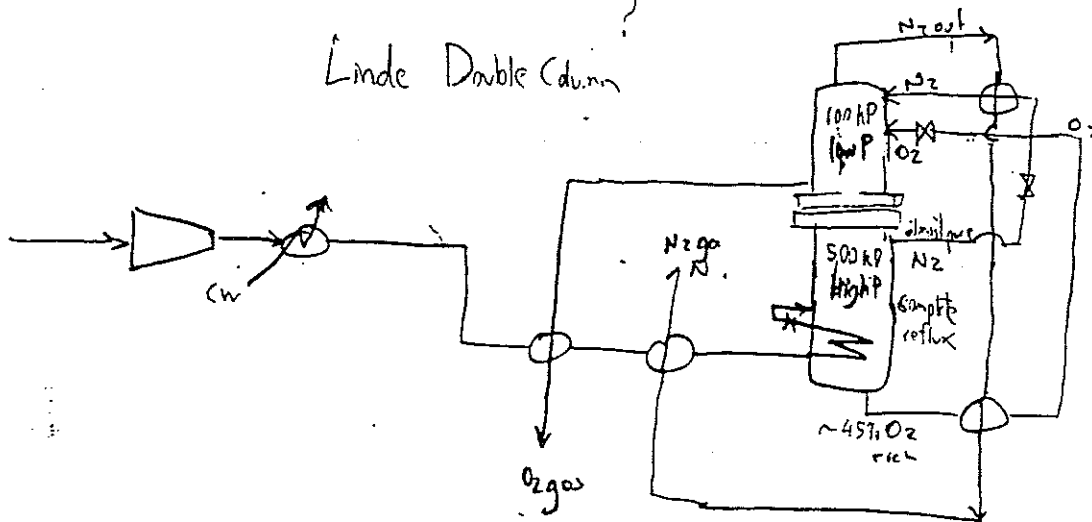 ?
Linde Double Column
N2 out
N2
100 kP
low P
O2
O2
N2 gas
N2
500 kP
high P
complete
reflux
CW
~45% O2
rich
O2 gas